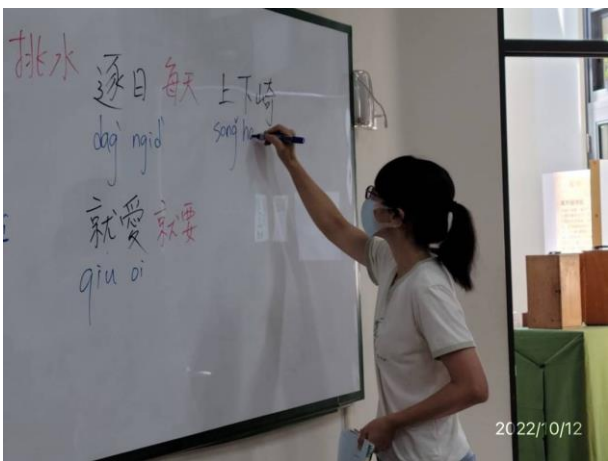 挑水
逐日 每天 上下崎
dag ngid song ha
就愛 就要
qiu oi
2022/10/12